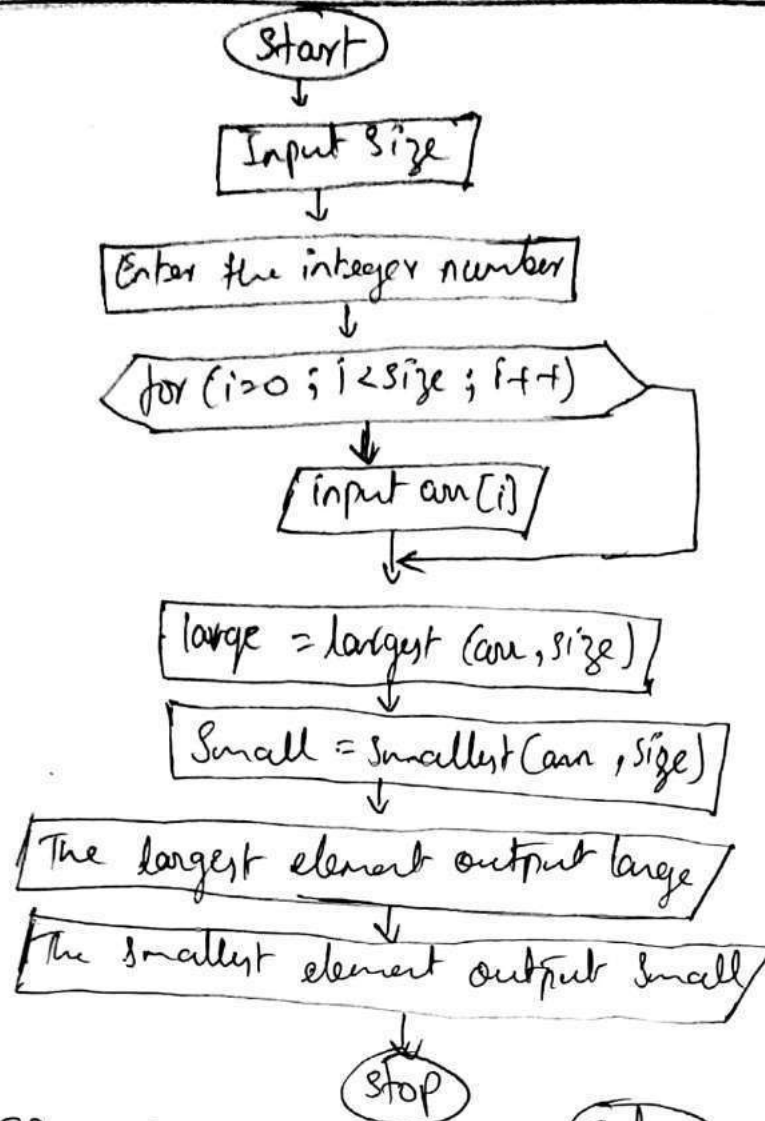 Start
Input Size
Enter the integer number
for (i=0 ; i<size ; i++)
input arr[i]
large = largest (arr, size)
Small = smallest (arr, size)
The largest element output large
The smallest element output small
Stop